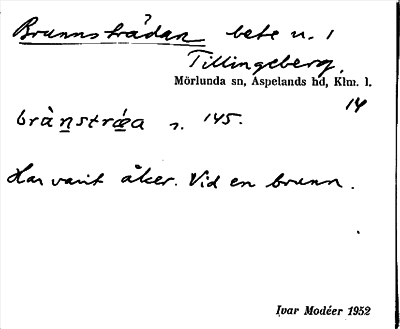 Brunnstrådan bete n. 1
Tillingeberg,
Mörlunda sn, Aspelands hd, Klm. l.
14
brànstrǿa n. 145.
Har varit åker. Vid en brunn.
Ivar Modéer 1952